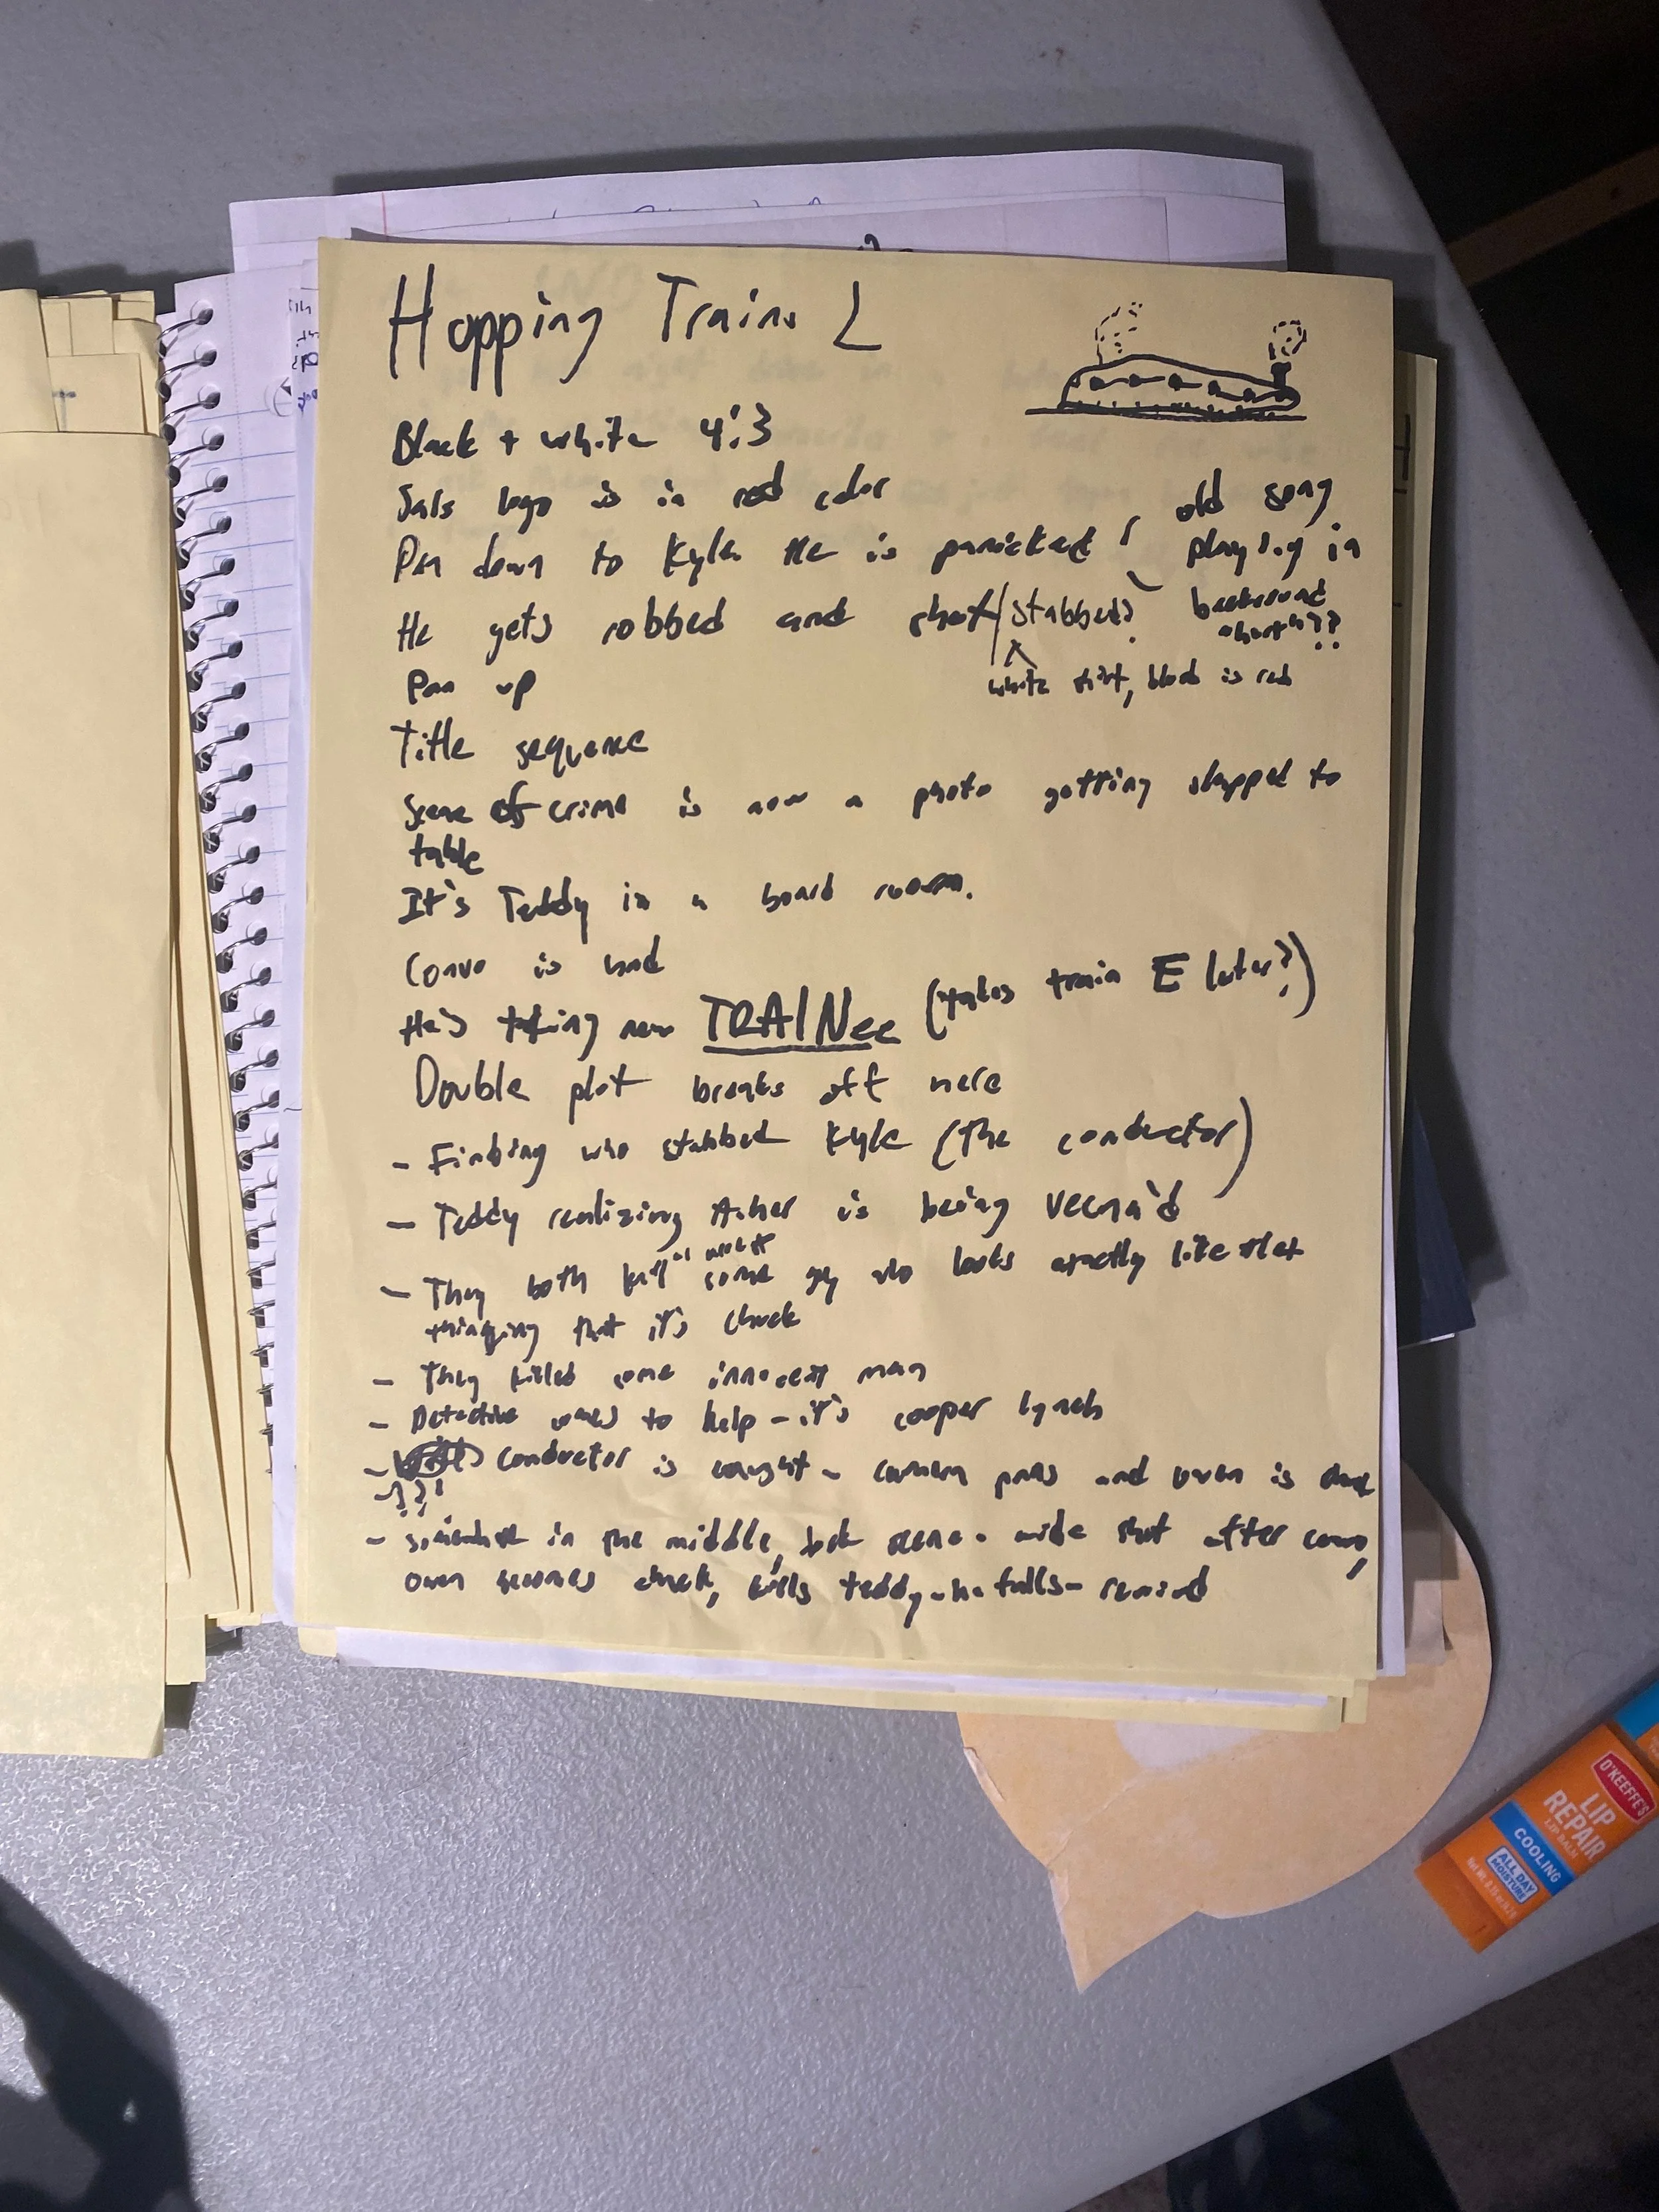 Hopping Trains 2
Black + white 4:3
logo is in red color
Pan down to Kyle. He is panicked
old song
playing in
background
He gets robbed and shot/stabbed?
white shirt, blood is red
Pan up
Title sequence
Scene of crime is now a photo getting slapped to
table
It's Teddy in a board room.
Convo is had
He's taking new TRAINee (takes train E later?)
Double plot breaks off here
- Finding who stabbed Kyle (The conductor)
- Teddy realizing Asher is being Vecna'd
- They both kill some guy who looks exactly like
thinking that it's Chuck
- They killed some innocent man
- Detective comes to help - it's cooper lynch
- conductor is caught - camera pans and owen is
- ???
- somewhere in the middle, scene - wide shot after convo,
owen becomes chuck, kills teddy - he falls - rewind
O'KEEFFE'S
LIP
REPAIR
LIP BALM
COOLING
ALL DAY
MOISTURE